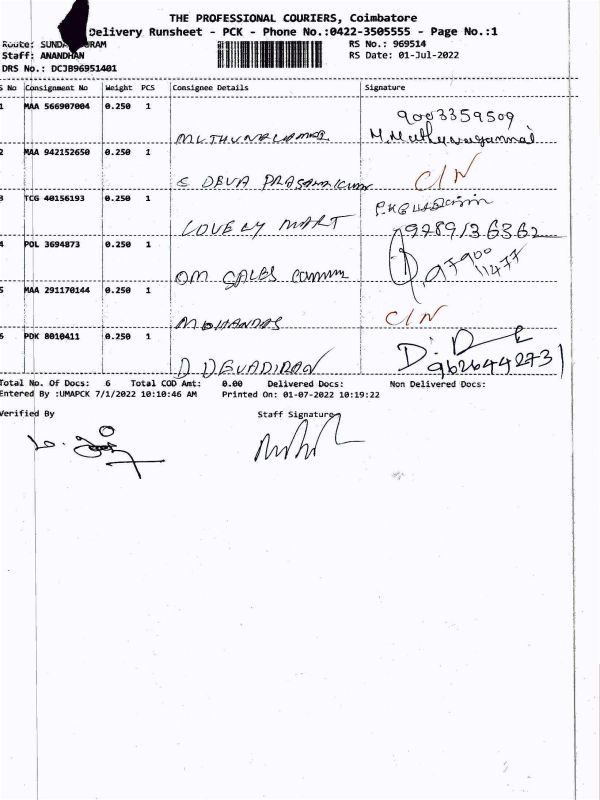 THE PROFESSIONAL COURIERS, Coimbatore
Delivery Runsheet - PCK - Phone No.:0422-3505555 - Page No.:1
Route: RS No.: 969514
Staff: ANANDHAN RS Date: 01-Jul-2022
DRS No.: DCJB96951401
S No Consignment No Weight PCS Consignee Details Signature
1 MAA 566907004 0.250 1 9003359509
2 MAA 942152650 0.250 1
C/N
3 TCG 40156193 0.250 1
LOVELY MART 9789136362
4 POL 3694873 0.250 1 97900
11477
OM SALES
5 MAA 291170144 0.250 1
MOHANDAS C/N
6 PDK 8010411 0.250 1
9626442731
Total No. Of Docs: 6 Total COD Amt: 0.00 Delivered Docs: Non Delivered Docs:
Entered By :UMAPCK 7/1/2022 10:10:46 AM Printed On: 01-07-2022 10:19:22
Verified By Staff Signature